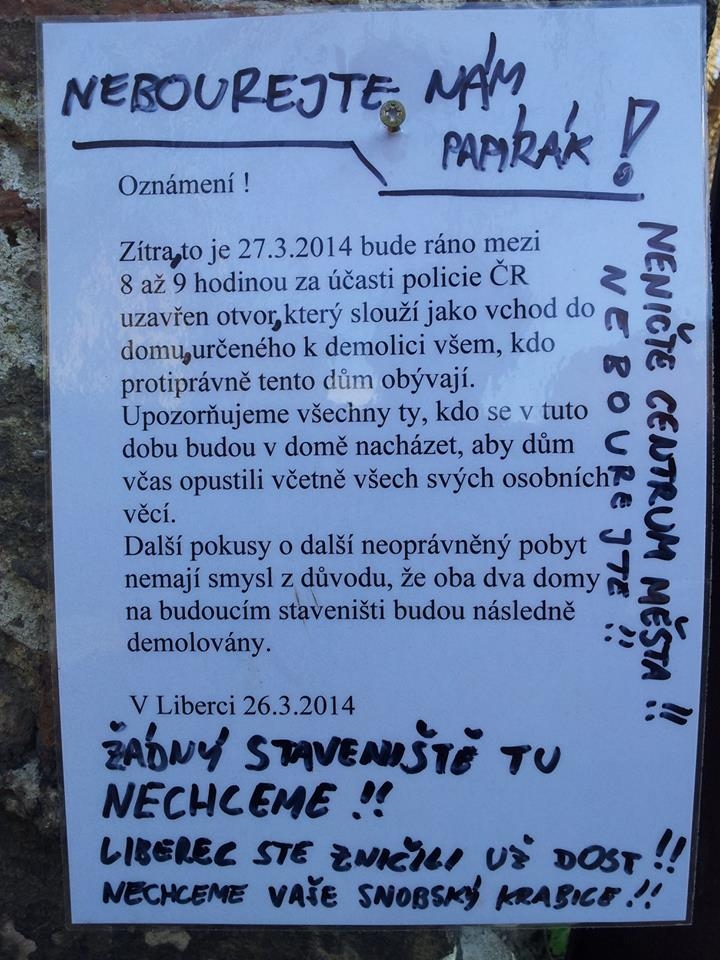 NEBOUREJTE NÁM
PAPÍRÁK!
Oznámení !
Zítra,to je 27.3.2014 bude ráno mezi
8 až 9 hodinou za účasti policie ČR
uzavřen otvor,který slouží jako vchod do
domu,určeného k demolici všem, kdo
protiprávně tento dům obývají.
Upozorňujeme všechny ty, kdo se v tuto
dobu budou v domě nacházet, aby dům
včas opustili včetně všech svých osobních
věcí.
Další pokusy o další neoprávněný pobyt
nemají smysl z důvodu, že oba dva domy
na budoucím staveništi budou následně
demolovány.
V Liberci 26.3.2014
NENIČTE CENTRUM MĚSTA !!
NEBOUREJTE !!
ŽÁDNÝ STAVENIŠTĚ TU
NECHCEME !!
LIBEREC STE ZNIČILI UŽ DOST !!
NECHCEME VAŠE SNOBSKÝ KRABICE !!